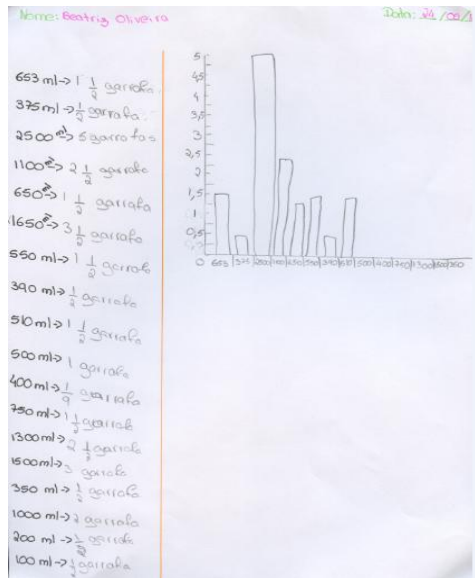 Nome: Beatriz Oliveira
Data: 24
653 ml -> 1 1/2 garrafa.
375 ml -> 1/2 garrafa.
2500 ml -> 5 garrafas
1100 ml -> 2 1/2 garrafa
650 ml -> 1 1/2 garrafa
1650 ml -> 3 1/2 garrafa
550 ml -> 1 1/2 garrafa
390 ml -> 1/2 garrafa
510 ml -> 1 1/2 garrafa
500 ml -> 1 garrafa
400 ml -> garrafa
750 ml -> 1 1/2 garrafa
1300 ml -> 2 1/2 garrafa
1500 ml -> 3 garrafa
350 ml -> 1/2 garrafa
1000 ml -> 2 garrafa
200 ml -> 1/2 garrafa
100 ml -> 1/2 garrafa
5
4,5
4
3,5
3
2,5
2
1,5
1
0,5
0 653 375 390 510 500 400 750 1300